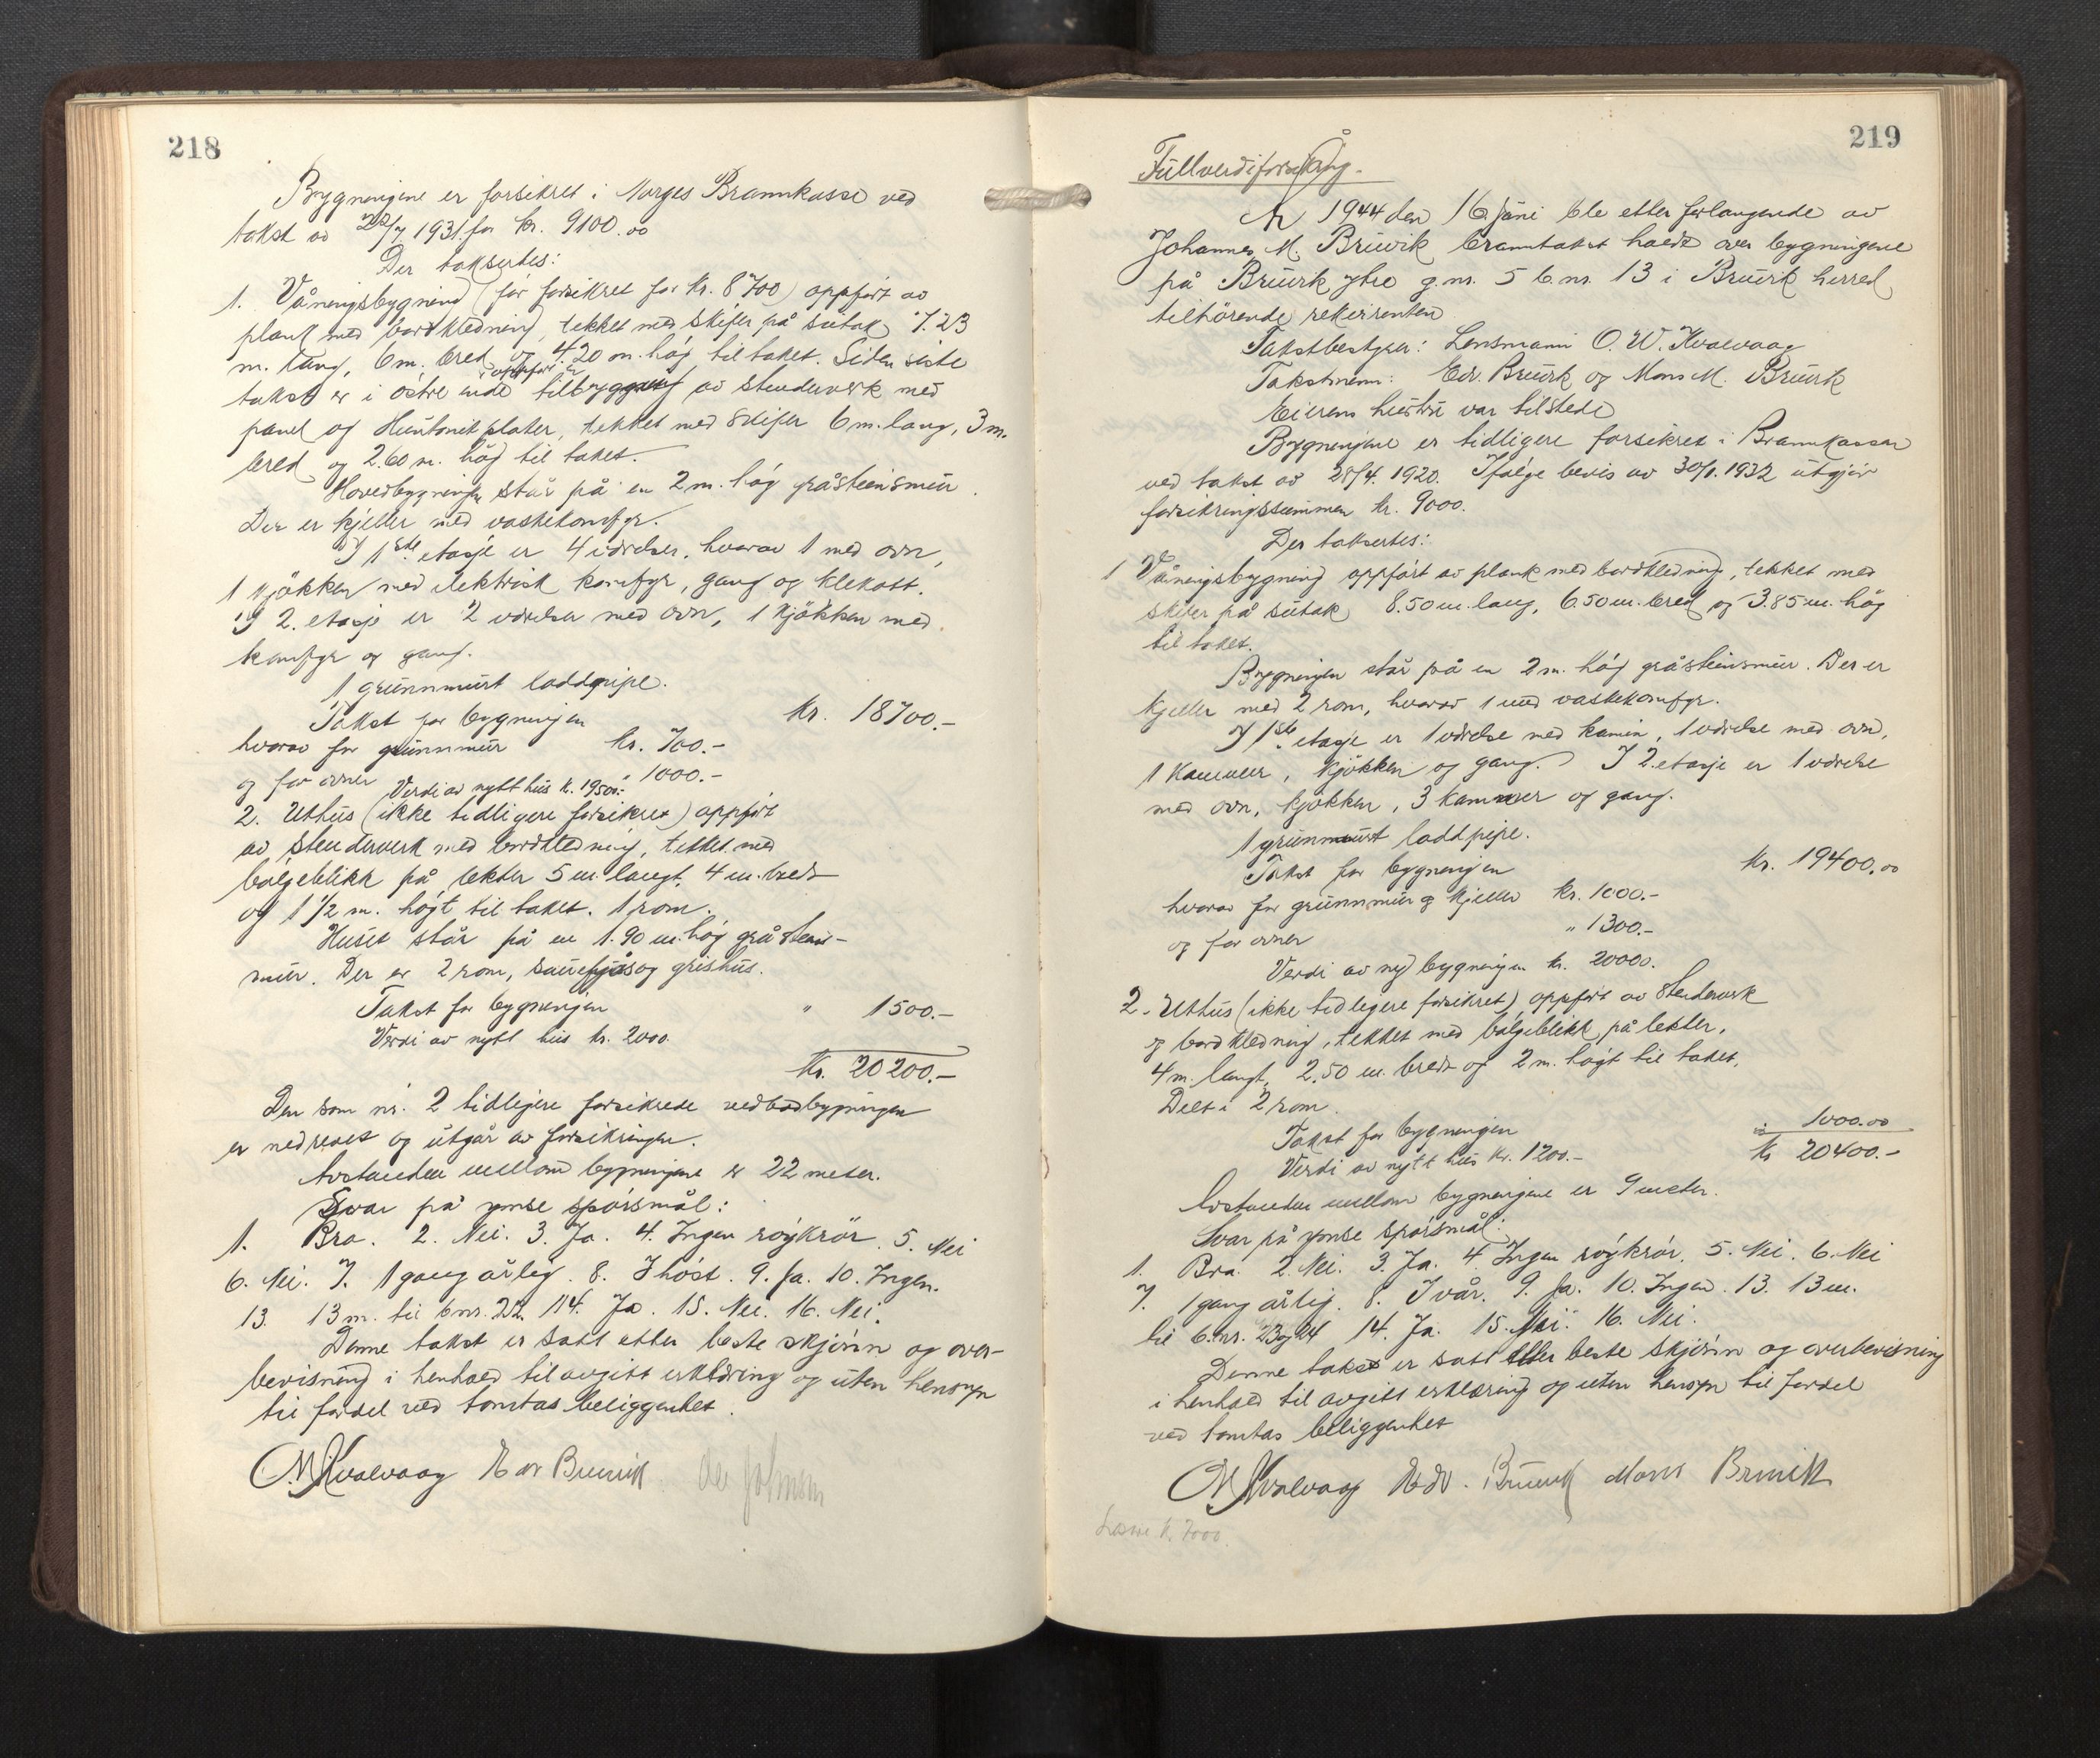 218
Bygningene er forsikret i Norges Brannkasse ved
takst av 22/7 1931 for kr. 9100.00
Der taksertes:
1. Våningsbygning (før forsikret for kr. 8700) oppført av
plank med bordkledning, tekket med skifer på sutak 7.23
m. lang, 6 m. bred og 4.20 m. høg til taket. Siden siste
takst er i østre ende oppført en tilbygg av stenderverk med
panel og Huntonit plater, tekket med skifer 6 m. lang, 3 m.
bred og 2.60 m. høg til taket.
Hovedbygningen står på en 2 m. høg gråsteinsmur.
Der er kjeller med vaskekomfyr.
I 1ste etasje er 4 værelser, hvorav 1 med ovn,
1 kjøkken med elektrisk komfyr, gang og klekott.
I 2. etasje er 2 værelser med ovn, 1 kjøkken med
komfyr og gang.
1 grunnmurt loddpipe.
Takst for bygningen kr. 18700.-
hvorav for grunnmur kr. 700.-
og for ovner " 1000.-
Verdi av nytt hus k. 19500.-
2. Uthus (ikke tidligere forsikret) oppført
av stenderverk med bordkledning, tekket med
bølgeblikk på lekter 5 m. langt, 4 m. bredt
og 1 1/2 m. høgt til taket. 1 rom.
Huset står på en 1.90 m. høg gråsteins-
mur. Der er 2 rom, sauefjøs og grishus.
Takst for bygningen " 1500.-
Verdi av nytt hus kr. 2000.
Kr. 20200.-
Den som nr. 2 tidligere forsikrede vedbodbygningen
er nedrevet og utgår av forsikringen.
Avstanden mellom bygningene er 22 meter.
Svar på ymse spørsmål:
1. Bra. 2. Nei. 3. Ja. 4. Ingen røykrør. 5. Nei
6. Nei. 7. 1 gang årlig. 8. I høst. 9. Ja. 10. Ingen.
13. 13 m. til bnr. 22. 14. Ja. 15. Nei. 16. Nei.
Denne takst er satt etter beste skjønn og over-
bevisning i henhold til avgitt erklæring og uten hensyn
til fordel ved tomtas beliggenhet.
O W Kvalvaag Edv Bruvik
219
Fullverdiforsikring.
År 1944 den 16 juni ble etter forlangende av
Johannes M. Bruvik branntakst holdt over bygningene
på Bruvik ytre g.nr. 5 b.nr. 13 i Bruvik herred
tilhørende rekvirenten
Takstbestyrer: Lensmann O. W. Kvalvaag
Takstmenn: Edv. Bruvik og Mons M. Bruvik
Eierens hustru var tilstede
Bygningene er tidligere forsikret i Brannkassen
ved takst av 28/4. 1920. Ifølge bevis av 30/1. 1932 utgjør
forsikringssummen kr. 9000.
Der taksertes:
1 Våningsbygning oppført av plank med bordkledning, tekket med
skifer på sutak 8.50 m. lang, 6.50 m. bred og 3.85 m. høg
til taket.
Bygningen står på en 2 m. høg gråsteinsmur. Der er
kjeller med 2 rom, hvorav 1 med vaskekomfyr.
I 1ste etasje er 1 værelse med kamin, 1 værelse med ovn,
1 kammer, kjøkken og gang. I 2. etasje er 1 værelse
med ovn, kjøkken, 3 kammer og gang.
1 grunnmurt loddpipe.
Takst for bygningen kr. 19400.00
hvorav for grunnmur og kjeller kr. 1000.-
og for ovner " 1300.-
Verdi av ny bygningen kr. 20000.
2. Uthus (ikke tidligere forsikret) oppført av stenderverk
og bordkledning, tekket med bølgeblikk på lekter,
4 m. langt, 2.50 m. bredt og 2 m. høgt til taket.
Delt i 2 rom.
Takst for bygningen " 1000.00
Verdi av nytt hus kr. 1200.- kr 20400.-
Avstanden mellom bygningene er 9 meter.
Svar på ymse spørsmål:
1. Bra. 2. Nei. 3. Ja. 4. Ingen røykrør. 5. Nei. 6. Nei
7. 1 gang årlig. 8. I vår. 9. Ja. 10. Ingen. 13. 13 m.
til b.nr. 23 og 24 14. Ja. 15. Nei. 16. Nei.
Denne takst er satt etter beste skjønn og overbevisning
i henhold til avgitt erklæring og uten hensyn til fordel
ved tomtas beliggenhet
O W Kvalvaag Edv. Bruvik Mons Bruvik
k. 7000.